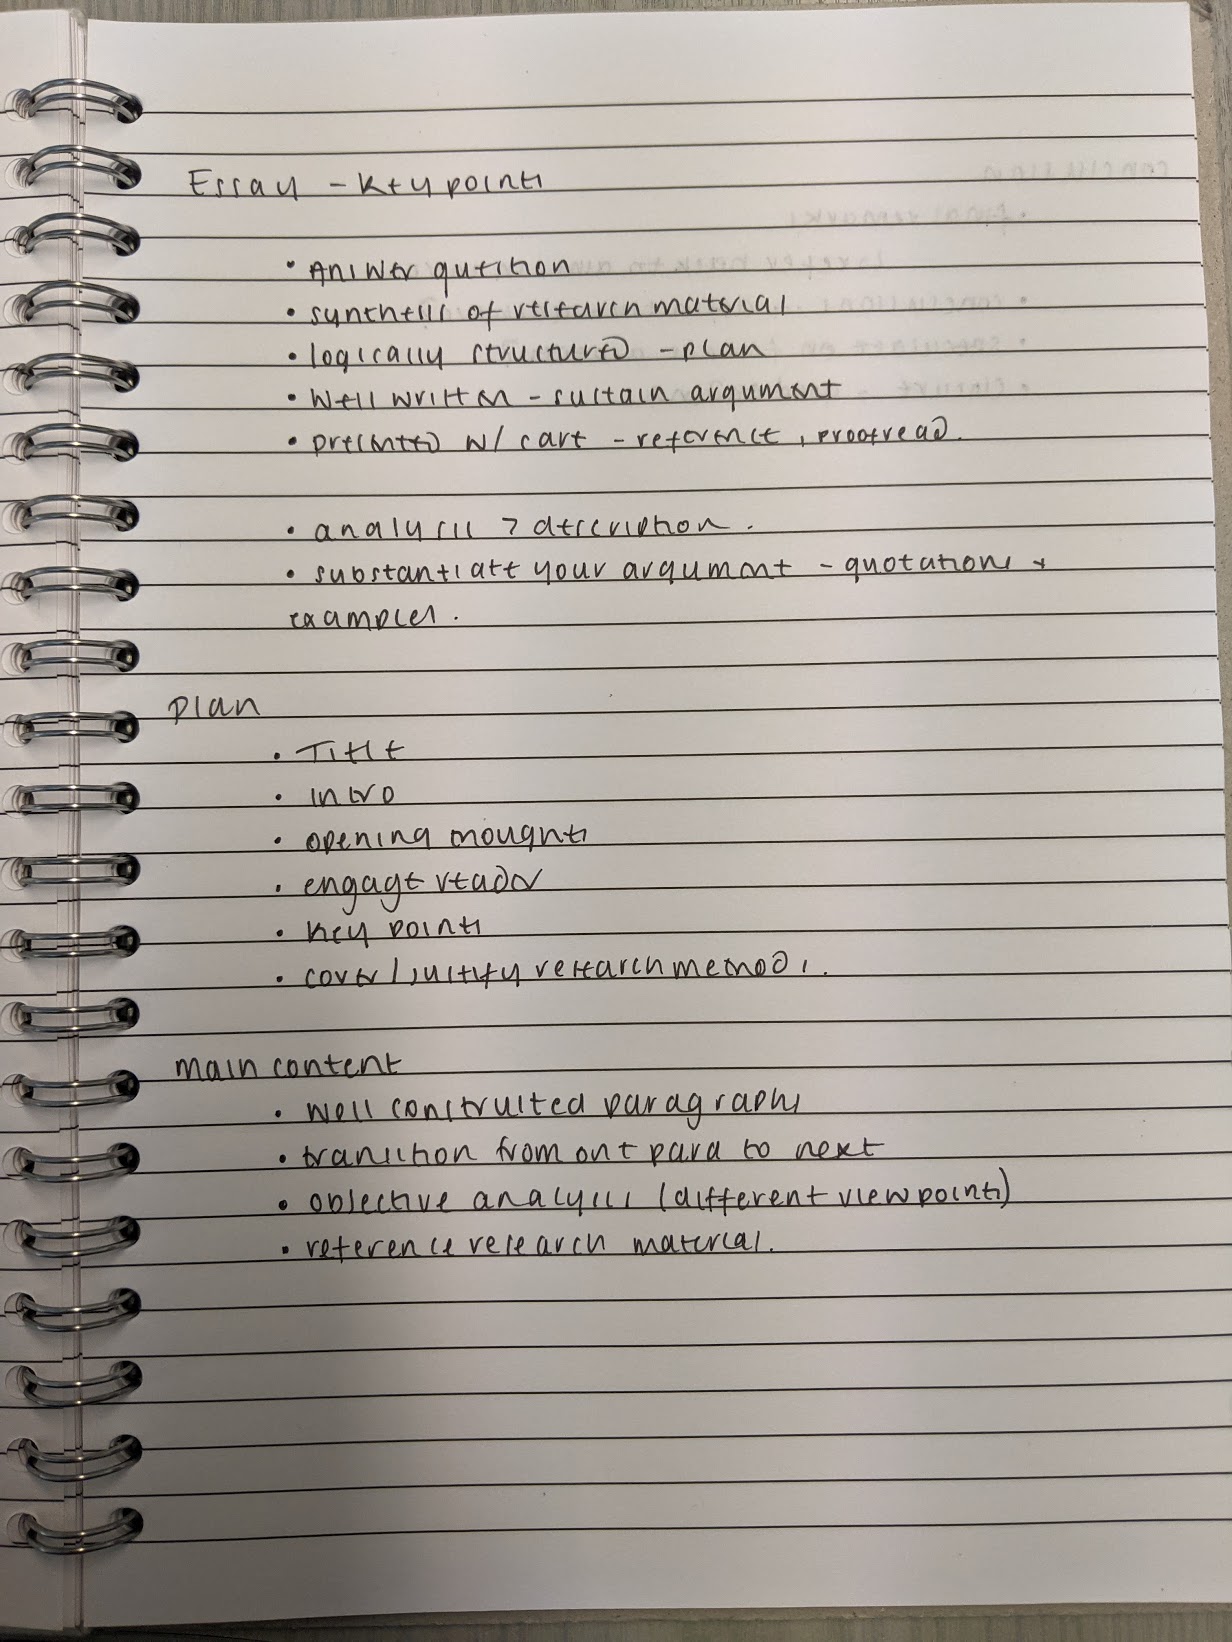 Essay - Key points
• Answer question
• synthesis of research material
• logically structured - plan
• Well written - sustain argument
• presented w/ care - reference, proofread.
• analysis > description.
• substantiate your argument - quotations +
examples.
plan
• Title
• intro
• opening thoughts
• engage reader
• key points
• cover/justify research methods.
main content
• well constructed paragraphs
• transition from one para to next
• objective analysis (different viewpoints)
• reference research material.